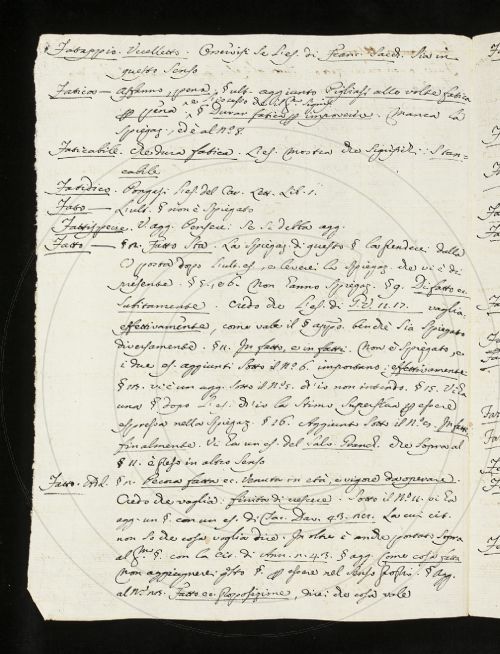 Fatappio. Uccelletto. Osservisi se l'es. di Franc. Sacch. sia in
questo senso
Fatica — Affanno, pena §. ult. aggiunto Pigliasi alle volte fatica
pena § Durar fatica improvera. Manca la
Spiegaz., ed è al N.° 8.
Faticabile. Che dura fatica. L'es. mostra che significhi: Stan-
cabile
Fatidico. Pongasi l'es. del Cav. Lett. Lib. 1.
Fato — L'ult. § non è Spiegato
Fattispecie. V. agg. Pensar: se si debba agg.
Fatto — §. 2. Fatto sta. La Spiegaz. di questo § la prenderei dalla
posta dopo l'ult. es., e leverei la Spiegaz. che vi è di
presente. §. 5., e 6. Non hanno Spiegaz. §. 9. Di fatto ec.
Subitamente. Credo che l'es. di G. V. 11. 17. voglia:
effettivamente, come vale il § appo. benchè sia Spiegato
diversamente. §. 11. In fatto, e in fatti. Non è Spiegato, se
i due es. aggiunti sotto il N.° 6. importano: effettivamente
§. 13. vi è un agg. sotto il N.° 5. di io non intendo. §. 15. Vi è
una §. dopo l'es. di io la stimo superflua essere
espressa nella Spiegaz. §. 16. Aggiunto sotto il N.° 23. In fatti
finalmente. Vi ha un es. del Salv. che sopra al
§. 11. è preso in altro senso
Fatto. Add. §. 2. Persona fatta ec. Venuta in età, e vigore da operare.
Credo che voglia: finita di crescere. Sotto il N.° 4. vi ha
agg. un §. con un es. di Tac. Dav. 4. 3. 121. La cui cit.
non so che cosa voglia dire. In oltre è anche portato sopra
al §. con la cit. di Ann. n. 4. 3. § agg. Come cosa fatta
non aggiugnerei §. essere nel senso § agg.
al N.° 23. Fatto ec. Proposizione, dire: che cosa vale